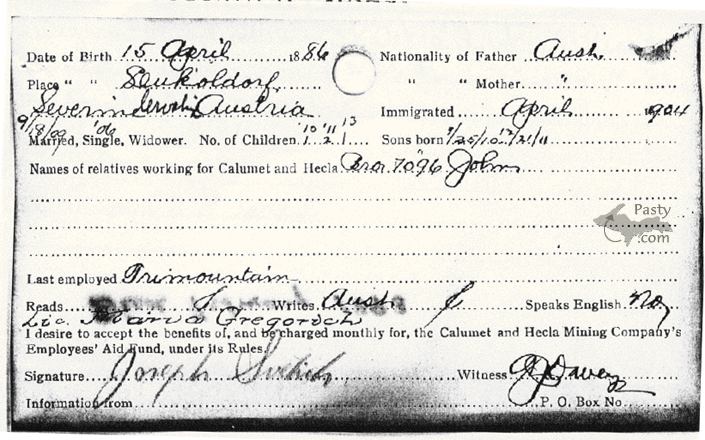 Date of Birth 15 April 1886 Nationality of Father Aust.
Place " " " " Mother "
Severin Austria Immigrated April 1904
9/18/09 '06 '10 '11 13
Married, Single, Widower. No. of Children 1 2 1 Sons born 7/25/10 12/21/11
Names of relatives working for Calumet and Hecla Bro 7096 John
Pasty
.com
Last employed Trimountain
Reads Writes Aust Speaks English No
Lic. Maria Gregorich
I desire to accept the benefits of, and be charged monthly for, the Calumet and Hecla Mining Company's
Employees' Aid Fund, under its Rules.
Signature Joseph Witness
Information from P. O. Box No.